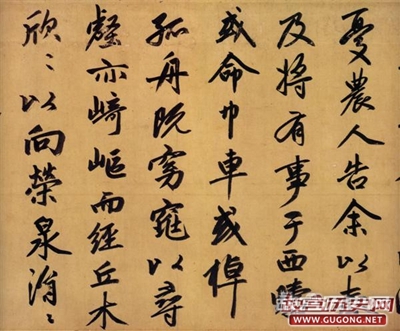 憂農人告余以春
及將有事于西疇
或命巾車或棹
孤舟既窈窕以尋
壑亦崎嶇而經丘木
欣〻以向榮泉涓〻
故宫历史网
www.GUGONG.NET